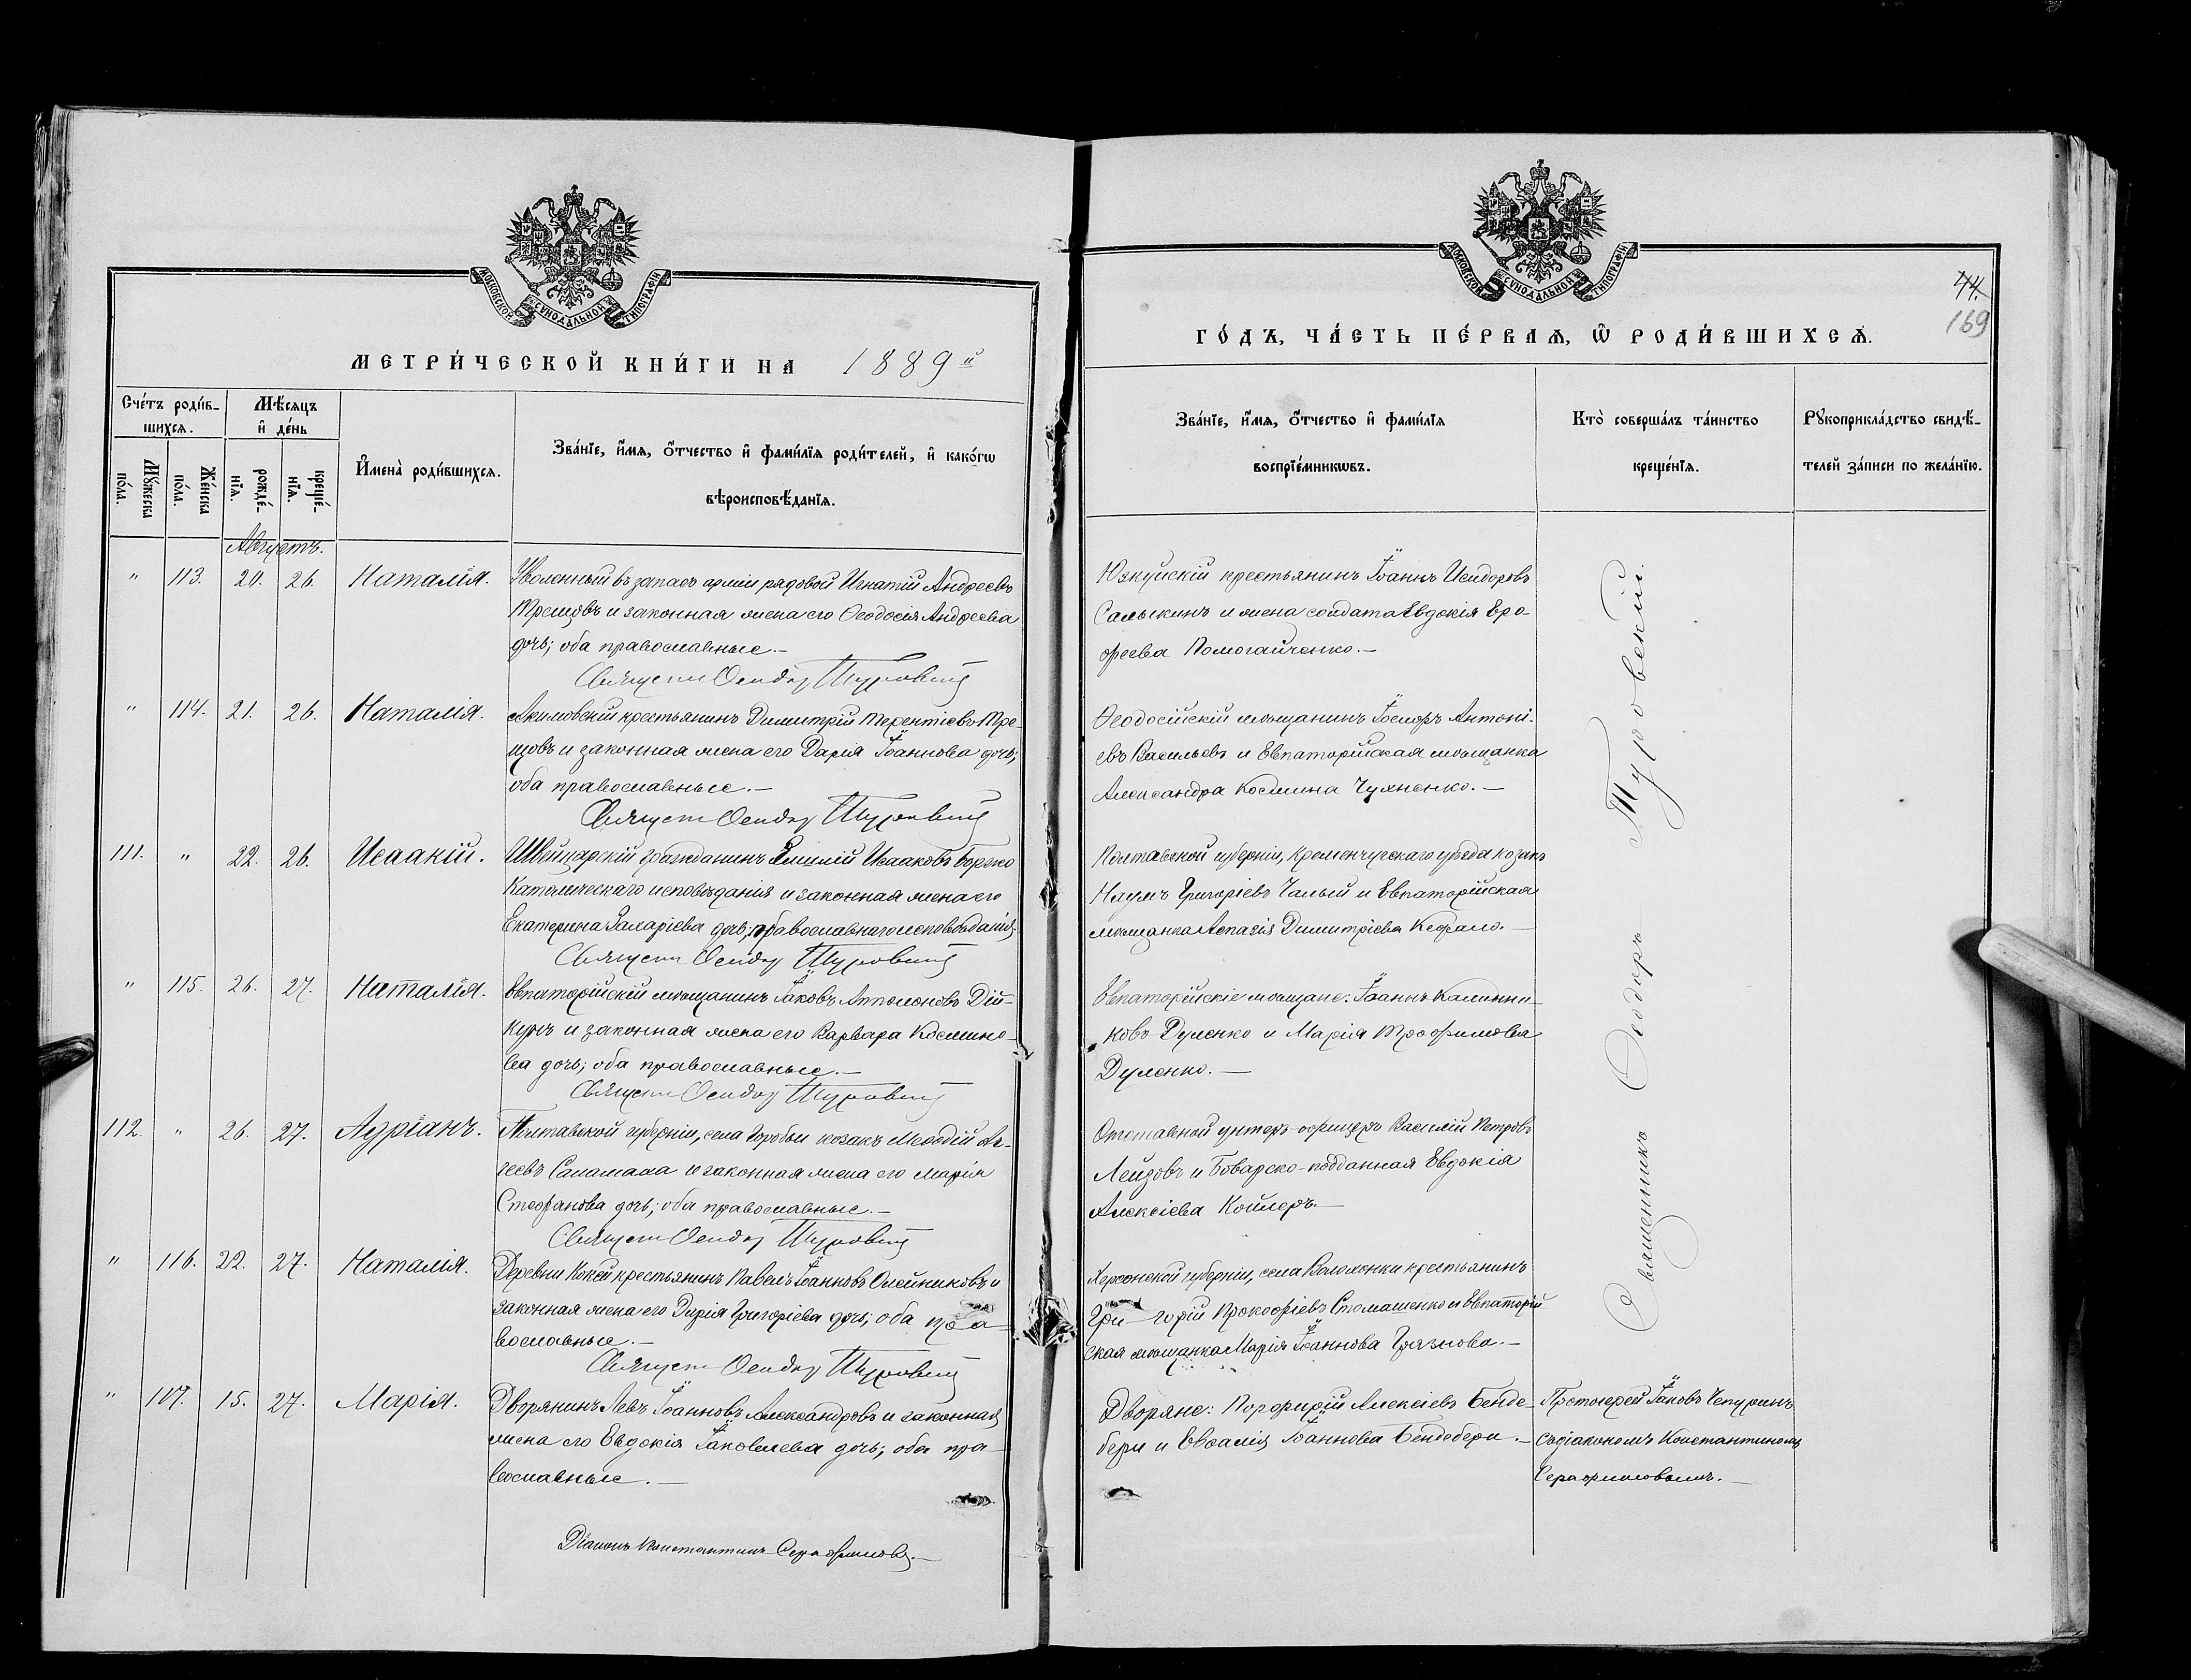 МОСКОВСКОЙ СУНОДАЛЬНОЙ ТИПОГРАФІИ
МЕТРИ́ЧЕСКОЙ КНИ́ГИ НА 1889й
Сче́тъ роди́в-
шихсѧ.
Мѣ́сѧцъ
и҆ де́нь
И҆мена̀ роди́вшихсѧ.
Зва́нїе, и҆́мѧ, ѻ҆́тчество и҆ фами́лїѧ роди́телей, и҆ како́гѡ
вѣроисповѣ́данїѧ.
Мꙋ́жеска
по́ла.
Же́нска
по́ла.
рожде́-
нїѧ.
креще́-
нїѧ.
Августъ.
" 113. 20. 26. Наталія. Уволенный въ запасъ арміи рядовой Игнатій Андреевъ
и законная жена его Ѳеодосія Андреева
дочь; оба православные.-
Священ Ѳеодор Туровский
" 114. 21. 26. Наталія. Акимовскій крестьянинъ Димитрій Терентіевъ Тре-
щовъ и законная жена его Дарія Іоаннова дочь;
оба православные.-
Священ Ѳеодор Туровский
111. " 22. 26. Исаакій. Швейцарскій гражданинъ Исааковъ
Католическаго исповѣданія и законная жена его
Екатерина Захаріева дочь; православнаго исповѣданія.
Священ Ѳеодор Туровский
" 115. 26. 27. Наталія. Евпаторійскій мѣщанинъ Іаковъ Апполоновъ Дій-
кунъ и законная жена его Варвара Космино-
ва дочь; оба православные.-
Священ Ѳеодор Туровский
112. " 26. 27. Адріанъ. Полтавской губерніи, села козакъ Меѳодій Аг-
геевъ Саламаха и законная жена его Марія
Стефанова дочь; оба православные.-
Священ Ѳеодор Туровский
" 116. 22. 27. Наталія. Деревни крестьянинъ Павелъ Іоанновъ Олейниковъ и
законная жена его Дарія Григоріева дочь; оба пра-
вославные.-
Священ Ѳеодор Туровский
" 117. 15. 27. Марія. Дворянинъ Левъ Іоанновъ Александровъ и законная
жена его Евдокія Іаковлева дочь; оба пра-
вославные.-
Діаконъ Константинъ Серафимовъ.-
МОСКОВСКОЙ СУНОДАЛЬНОЙ ТИПОГРАФІИ
44.
169
ГО́ДЪ, ЧА́СТЬ ПЕ́РВАѦ, Ѡ҆ РОДИ́ВШИХСѦ.
Зва́нїе, и҆́мѧ, ѻ҆́тчество и҆ фами́лїѧ
воспрїе́мникѡвъ.
Кто̀ соверша́лъ та́инство
креще́нїѧ.
Рꙋкоприкла́дство свидѣ́-
телей за́писи по жела́нїю.
крестьянинъ Іоаннъ Исидоровъ
Салыкинъ и жена солдата Евдокія Еро-
феева Помогайченко.-
Ѳеодосійскій мѣщанинъ Іосифъ Антоні-
евъ Васильевъ и Евпаторійская мѣщанка
Александра Космина
Полтавской губерніи, Кременчугскаго уѣзда козакъ
Наумъ Григоріевъ Чалый и Евпаторійская
мѣщанка Аспазія Димитріева Кефало.-
Евпаторійскіе мѣщане: Іоаннъ Калинни-
ковъ Дуленко и Марія Трофимова
Дуленко.-
Отставной унтеръ-офицеръ Василій Петровъ
Лейзовъ и Баварско-подданная Евдокія
Алексіева Койлеръ.-
Херсонской губерніи, села крестьянинъ
Гри-горій Прокофіевъ Стомашенко и Евпаторій
ская мѣщанка Марія Іоаннова Грязнова.-
Дворяне: Порфирій Алексіевъ Бенде-
бери и Евфалія Іоаннова Бендебери.-
Священникъ Ѳеодоръ Туровскій.
Протоіерей Іаковъ Чепуринъ
съ діакономъ Константиномъ
Серафимовымъ.-